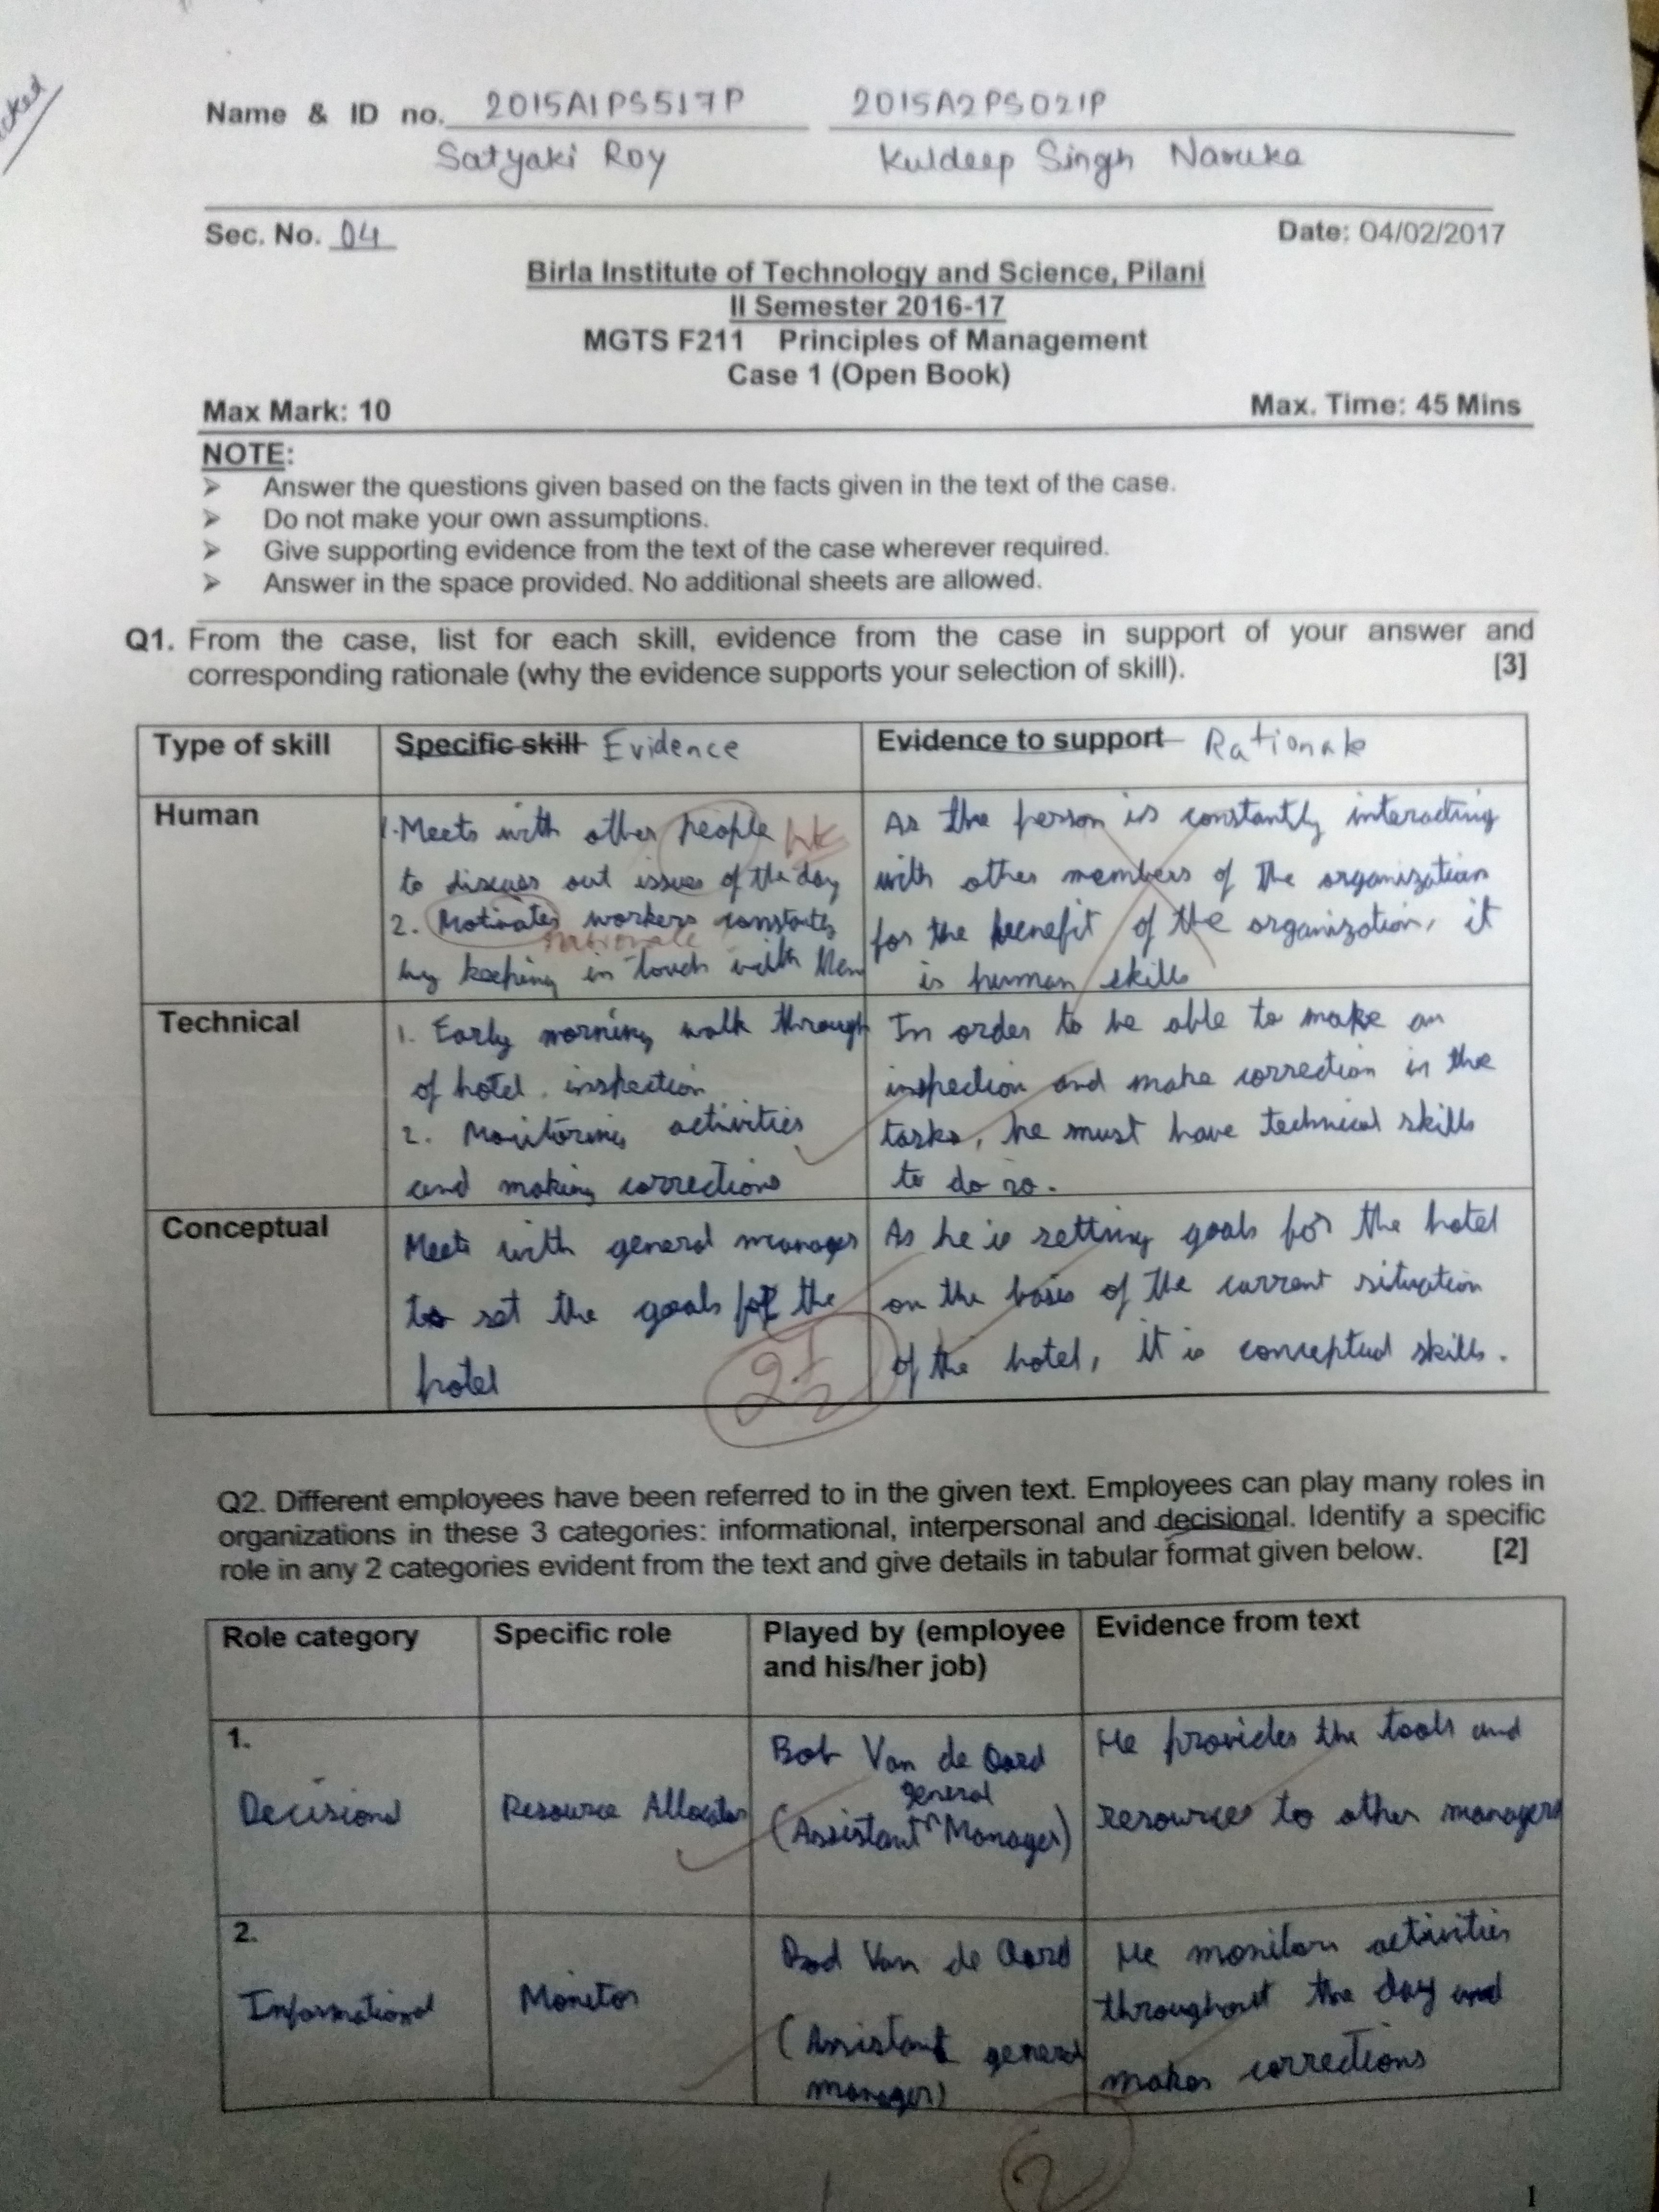 Name & ID no. 2015A1PS517P 2015A2PS021P
Satyaki Roy Kuldeep Singh Naruka
Sec. No. 04 Date: 04/02/2017
Birla Institute of Technology and Science, Pilani
II Semester 2016-17
MGTS F211 Principles of Management
Case 1 (Open Book)
Max Mark: 10 Max. Time: 45 Mins
NOTE:
➢ Answer the questions given based on the facts given in the text of the case.
➢ Do not make your own assumptions.
➢ Give supporting evidence from the text of the case wherever required.
➢ Answer in the space provided. No additional sheets are allowed.
Q1. From the case, list for each skill, evidence from the case in support of your answer and
corresponding rationale (why the evidence supports your selection of skill). [3]
Type of skill Specific skill Evidence Evidence to support Rationale
Human
1. Meets with other people
to discuss out issues of the day
2. Motivates workers constantly
rationale
by keeping in touch with them
As the person is constantly interacting
with other members of the organization
for the benefit of the organization, it
is human skills
Technical
1. Early morning walk through
of hotel. inspection
2. Monitoring activities
and making corrections
In order to be able to make an
inspection and make correction in the
tasks, he must have technical skills
to do so.
Conceptual
Meets with general manager
to set the goals for the
hotel
As he is setting goals for the hotel
on the basis of the current situation
of the hotel, it is conceptual skills.
2 1/2
Q2. Different employees have been referred to in the given text. Employees can play many roles in
organizations in these 3 categories: informational, interpersonal and decisional. Identify a specific
role in any 2 categories evident from the text and give details in tabular format given below. [2]
Role category Specific role Played by (employee Evidence from text
and his/her job)
1.
Decisional
Resource Allocator
Bob Van de Oord
general
(Assistant ^ Manager)
He provides the tools and
resources to other managers
2.
Informational
Monitor
Bod Van de Oord
(Assistant general
manager)
He monitors activities
throughout the day and
makes corrections
2
1